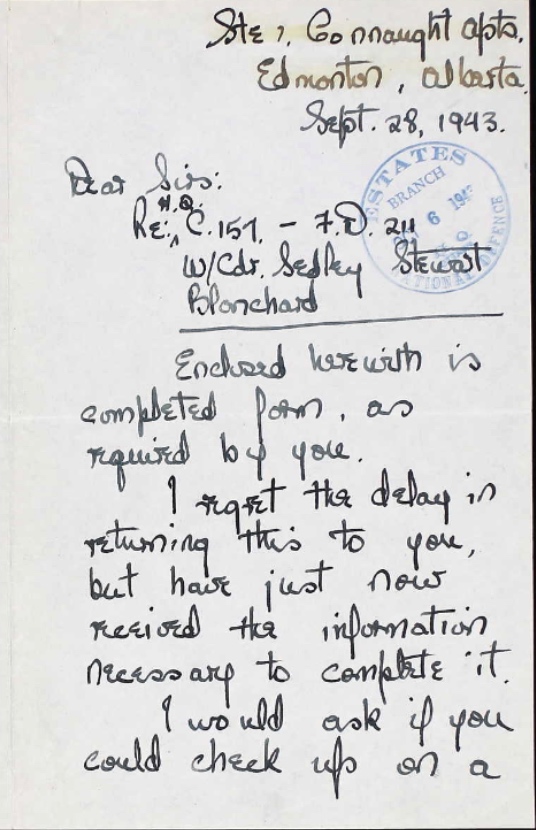 Ste 7, Connaught Apts.
Edmonton, Alberta.
Sept. 28, 1943.
Dear Sirs:
H.Q.
Re: C.157. - F.D. 211
W/Cdr. Sedley Stewart
Blanchard
ESTATES
BRANCH
6 194
NATIONAL DEFENCE
Enclosed herewith is
completed form, as
required by you.
I regret the delay in
returning this to you,
but have just now
received the information
necessary to complete it.
I would ask if you
could check up on a